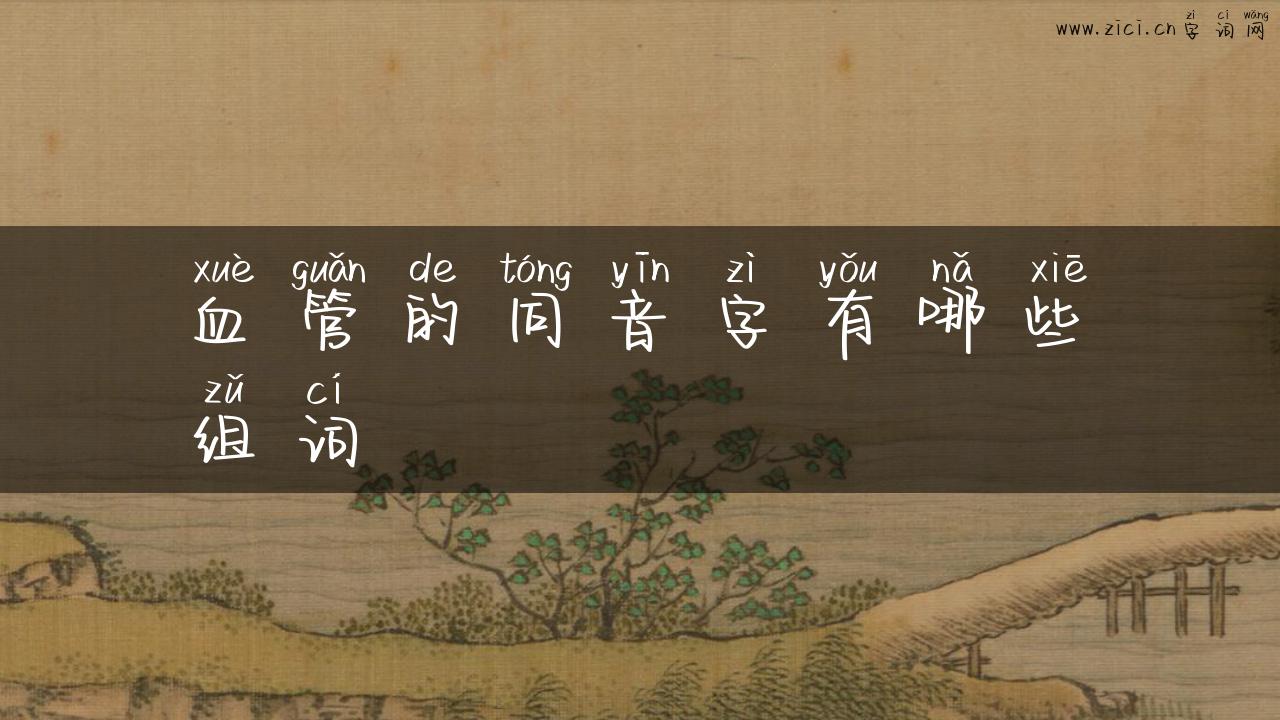 zì cí wǎng
www.zici.cn 字词网
xuè guǎn de tóng yīn zì yǒu nǎ xiē
血管的同音字有哪些
zǔ cí
组词